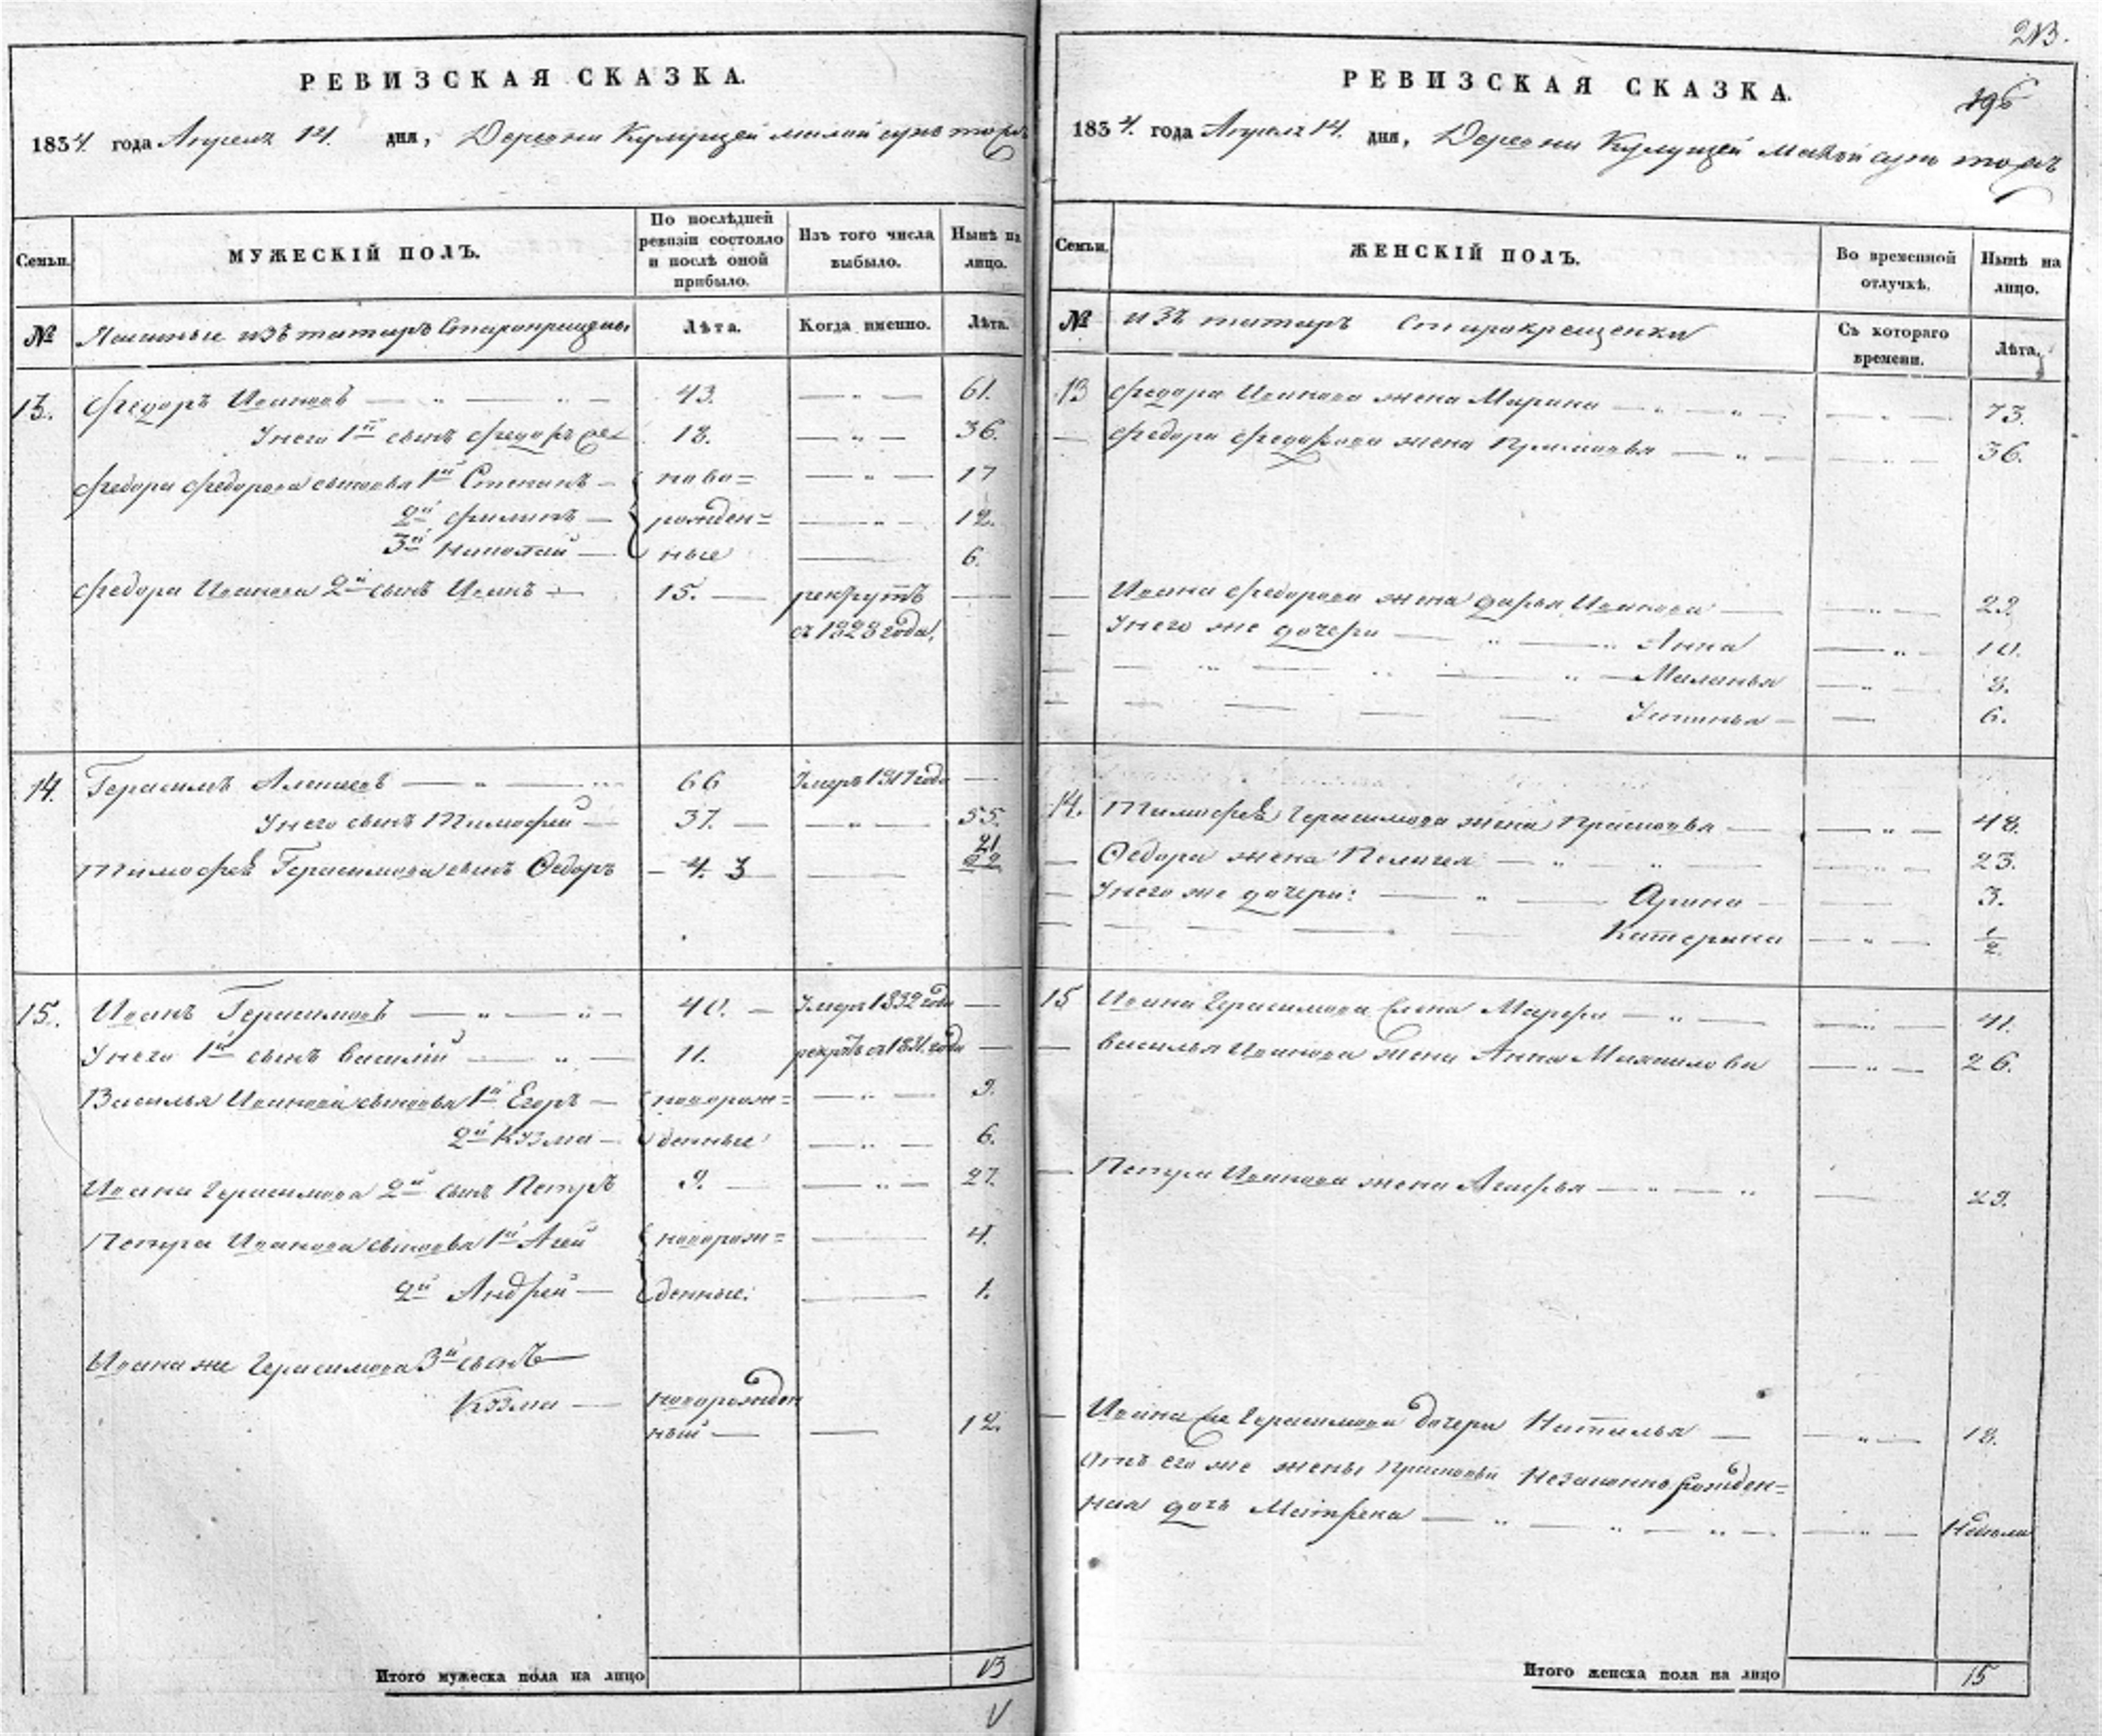 РЕВИЗСКАЯ СКАЗКА.
1834. года Апреля 14. дня, Деревни
МУЖЕСКІЙ ПОЛЪ.
Семьи.
По послѣдней ревизіи состояло и послѣ оной прибыло.
Изъ того числа выбыло.
Нынѣ на лицо.
№
Ясашные изъ татаръ
Лѣта.
Когда именно.
Лѣта.
13. Федоръ Ивановъ 43. 61.
Унего 1й сынъ Федоръ же 18. 36.
Федора Федорова сыновья 1й Степанъ ново= 17
2й Филипъ рожден= 12.
3й Николай ные 6.
Федора Иванова 2й сынъ Иванъ 15. рекрутъ
съ 1828 года.
14. Герасимъ Алексеевъ 66 Умеръ 1817 года
Унего сынъ Тимофей 37. 55.
21
Тимофея Герасимова сынъ Федоръ 4. 3 22
15. Иванъ Герасимовъ 40. Умеръ 1832 года
Унего 1й сынъ Василій 11. рекрутъ съ 1831. года
Василья Иванова сыновья 1й Егоръ новорож= 9.
2й Кузма денные 6.
Ивана Герасимова 2й сынъ Петръ 9. 27.
Петра Иванова сыновья 1й новорож= 4.
2й Андрей денные. 1.
Ивана же Герасимова 3й сынъ
Козма новорожден
ный 12.
Итого мужеска пола на лицо 13
213.
РЕВИЗСКАЯ СКАЗКА.
1834. года Апреля 14. дня, Деревни
Семьи.
ЖЕНСКІЙ ПОЛЪ.
Во временной отлучкѣ.
Нынѣ на лицо.
№
изъ татаръ Старокрещенки
Съ котораго времени.
Лѣта.
13 Федора Иванова жена Марина 73.
Федора Федорова жена Прасковья 36.
Ивана Федорова жена Дарья Иванова 29.
Унего же дочери Анна 10.
Маланья 8.
Устинья 6.
14. Тимофея Герасимова жена Прасковья 48.
Федора жена Пелагея 23.
Унего же дочери: Арина 3.
Катерина 1/2.
15 Ивана Герасимова жена Марфа 41.
Василья Иванова жена Анна 26.
Петра Иванова жена Агафья 29.
Ивана же Герасимова дочери Наталья 18.
его же жены Прасковьи незаконно рожден=
ная дочь Матрена Недели
Итого женска пола на лицо 15